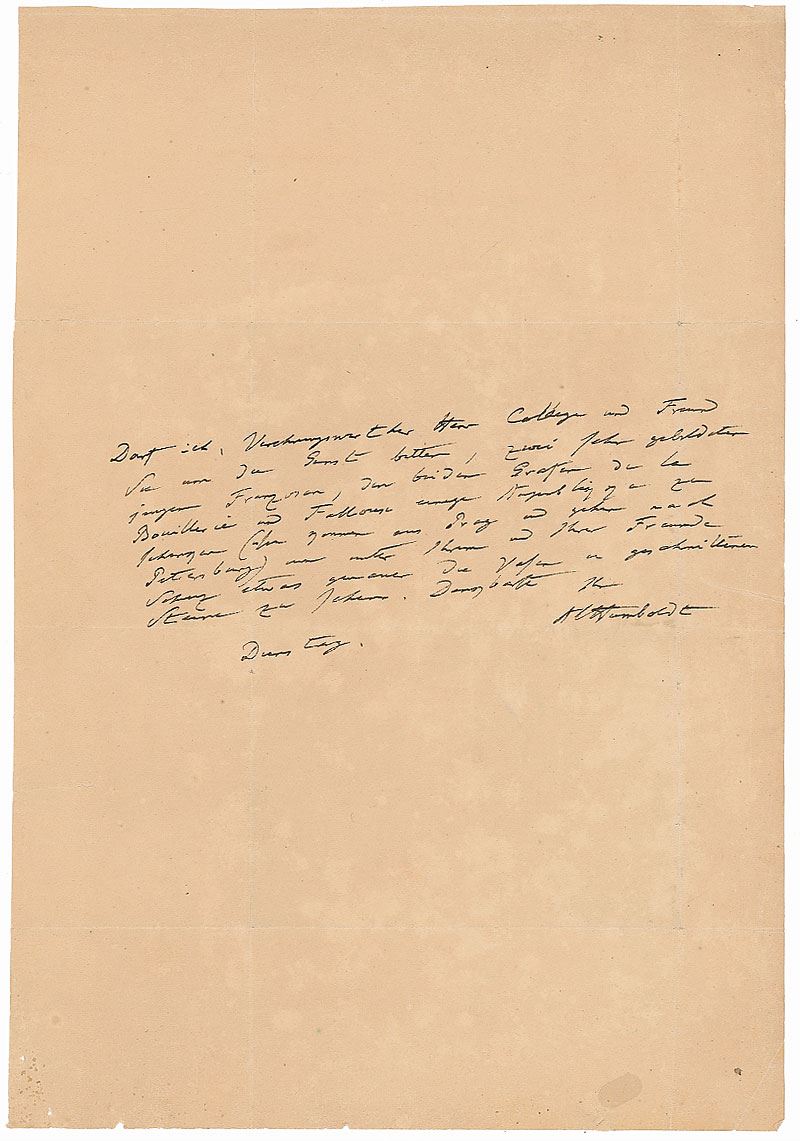 Darf ich, Verehrungswerther Herr College und Freund
Sie um die Gunst bitten, zwei sehr gebildeten
jungen Franzosen, den beiden Grafen de la
Bouillerie und Falloux einige zu
schenken (sie kommen aus Prag und gehen nach
Petersburg) um unter Ihrem und Ihrer Freunde
Schuz etwas genauer die Vasen u geschnittenen
Steine zu sehen. Dankbarst Ihr
AlHumboldt
Dienstag.